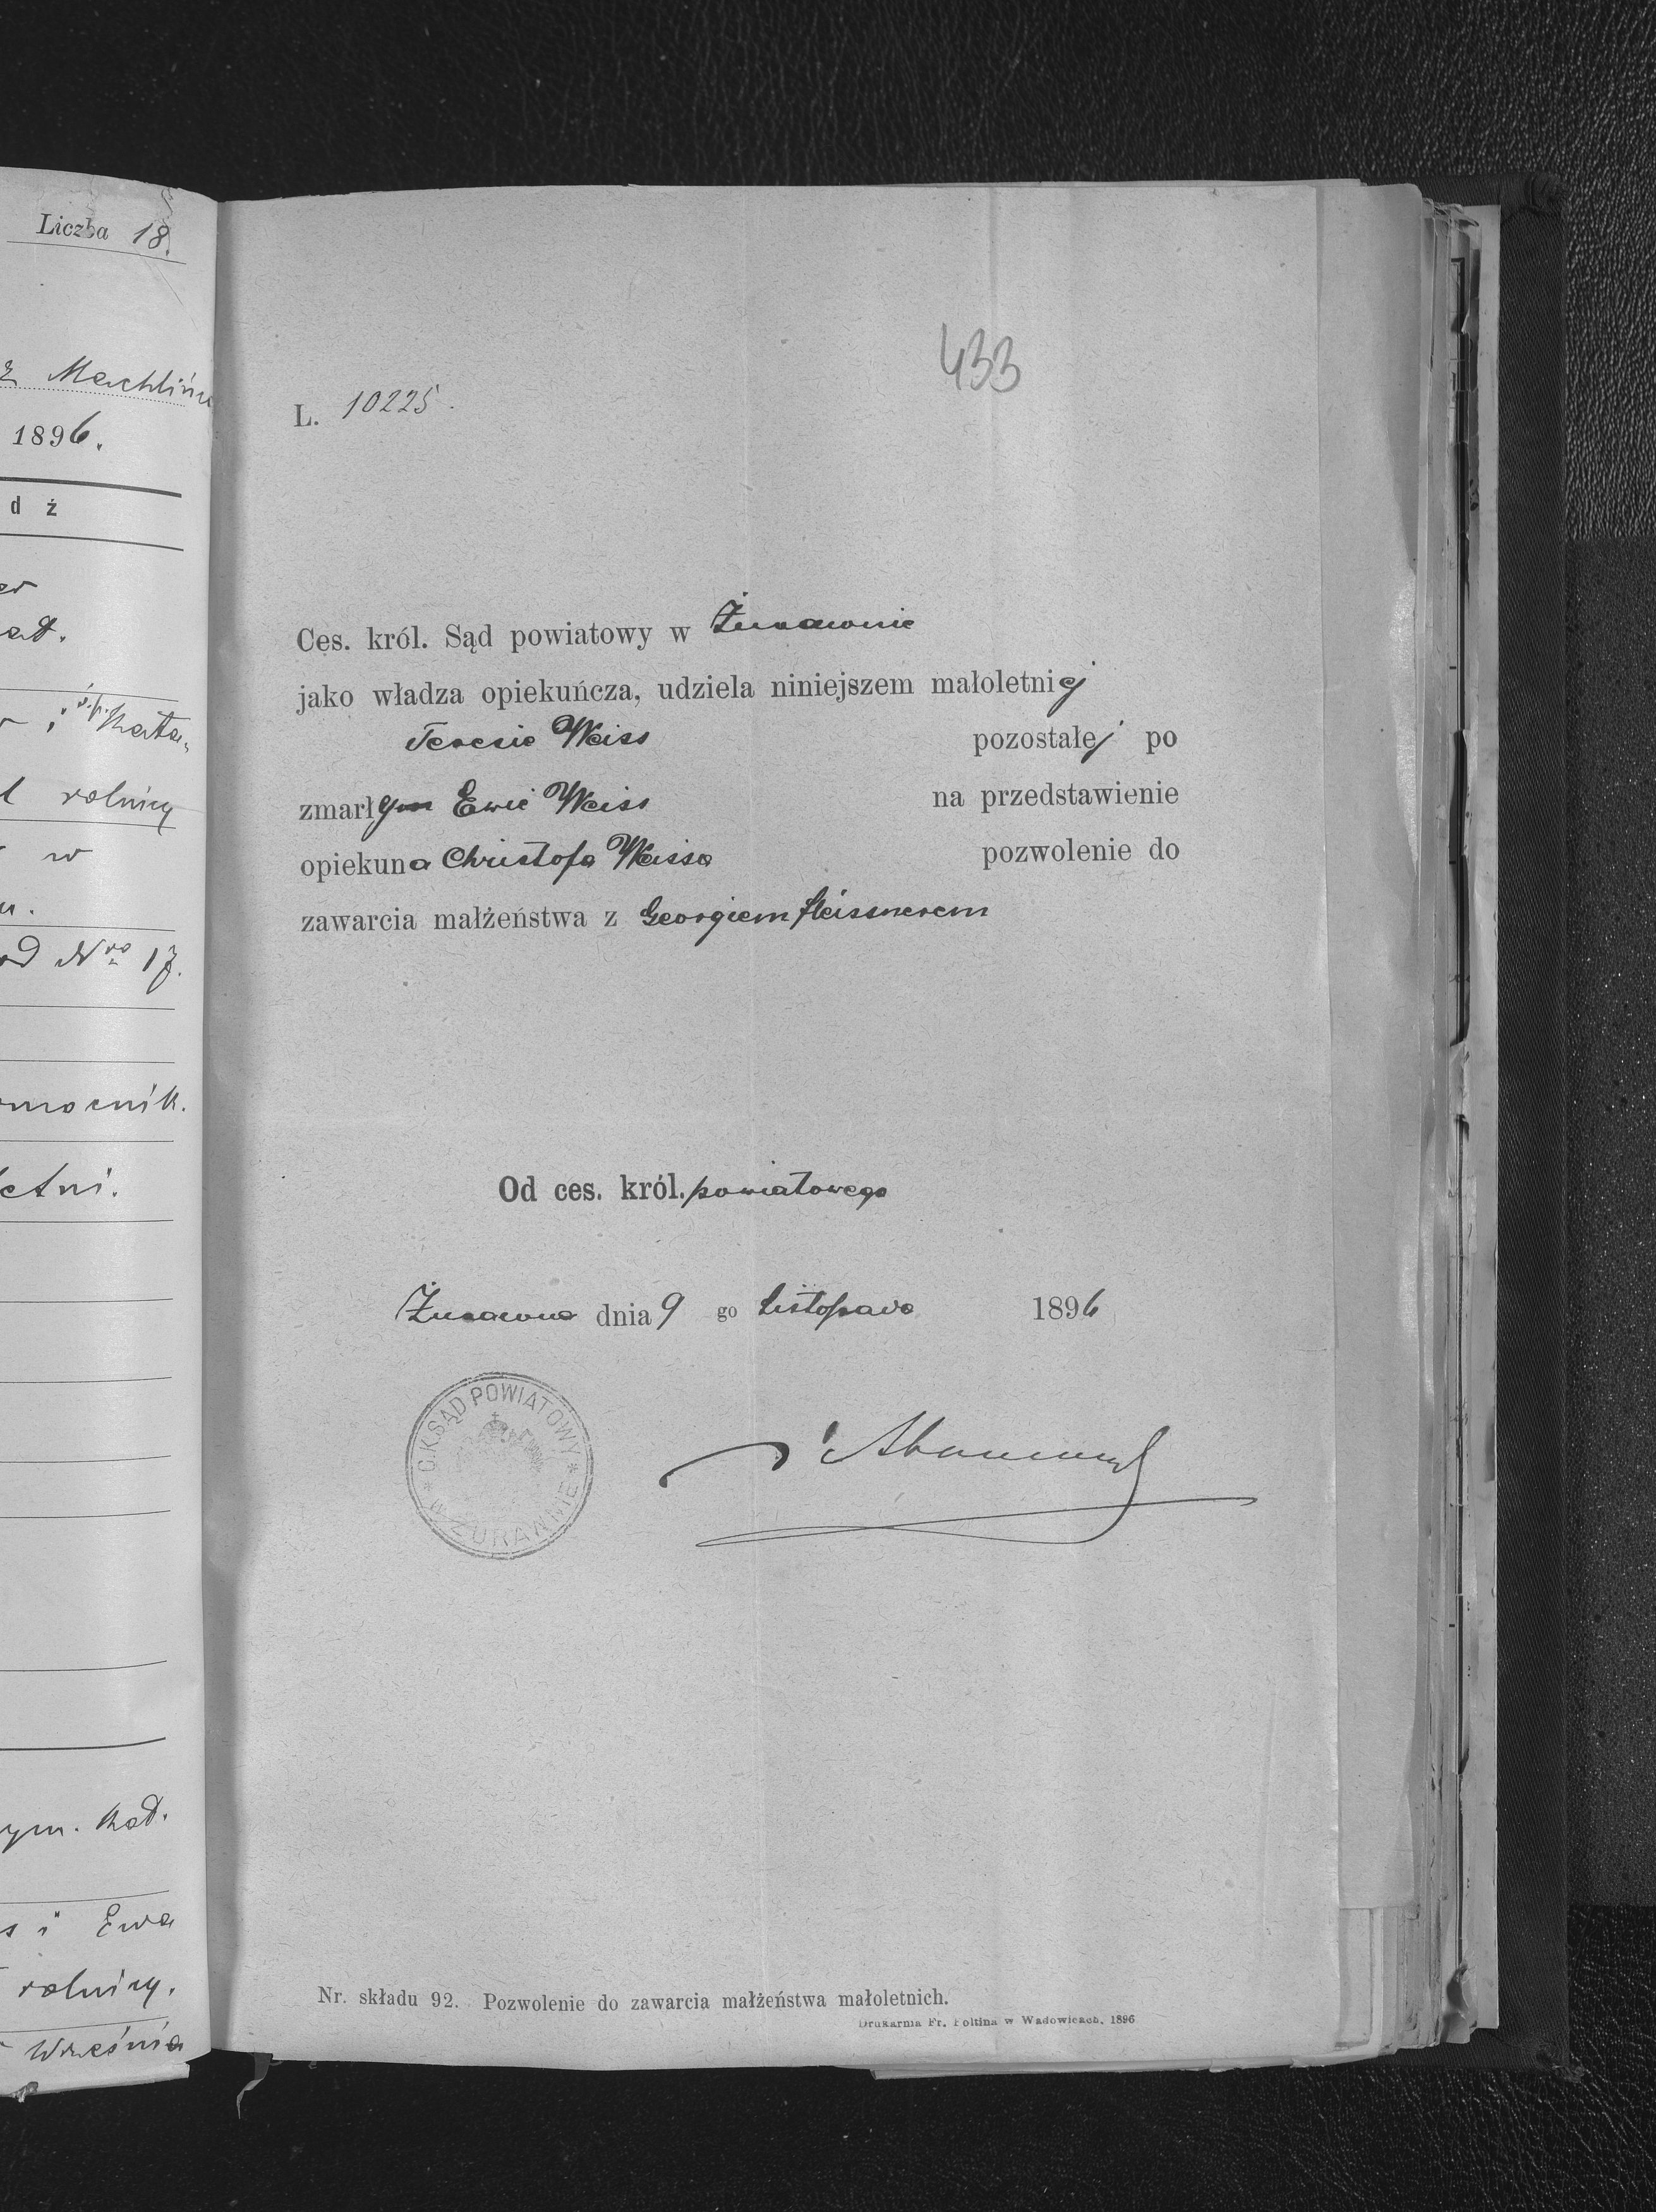 Liczba 18.
z Machlińca
1896.
dź
i ś.p. Kata-
rolnicy
w
Nro 17.
rolnicy.
i Ewa
Września
433
L. 10225.
Ces. król. Sąd powiatowy w Żurawnie
jako władza opiekuńcza, udziela niniejszem małoletniej
Teresie Weiss pozostałej po
zmarłym Ewie Weiss na przedstawienie
opiekuna Christofa Weissa pozwolenie do
zawarcia małżeństwa z Georgiem Fleissnerem
Od ces. król. powiatowego
Żurawno dnia 9 go listopada 1896
C.K. SĄD POWIATOWY
W ŻURAWNIE
Nr. składu 92. Pozwolenie do zawarcia małżeństwa małoletnich.
Drukarnia Fr. Foltina w Wadowicach, 1896